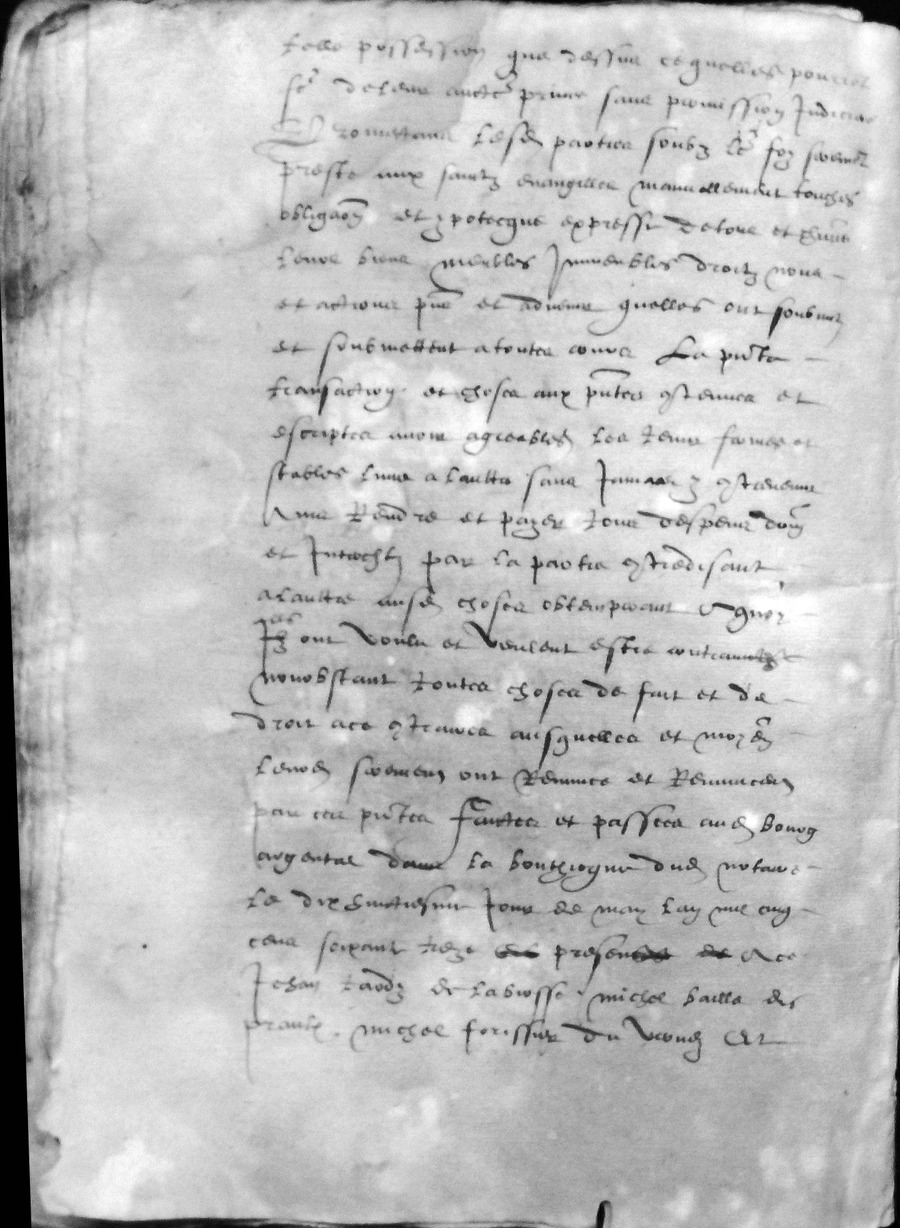 telle possession que dessus ce quelles pourront
de leur auctē privee sans permission Judiciere
Promettans lesd parties soubz lr foy serement
preste aux sainctz evangilles manuellement touches
obligaon et ypotecque expresse de tous et
leurs biens meubles Immeubles droitz noms
et actions pns et advenir quelles ont soubmis
et soubmettent a toutes cours La pnte
transaction et choses aux pntes contenues et
escriptes avoir agreables les tenir fermes et
stables lune a laultre sans Jamais y contrevenir
Ains Rendre et payer tous despens dom
et Interestz par la partie contredisant
a laultre ausd choses obtemperant A quoy
Ilz ont voulu et veulent estre
nonobstant toutes choses de fait et de
droit a ce contraires ausquelles et moyen
leursd seremens ont Renunce et Renuncent
par ces pntes faictes et passees aud bourg
argental dans la bouthicque dud notaire
le dix huictiesme Jour de may lan mil cinq
cens seixante treze presens A ce
Jehan tardy de la brosse michel baille des
praulx michel forissier du Et